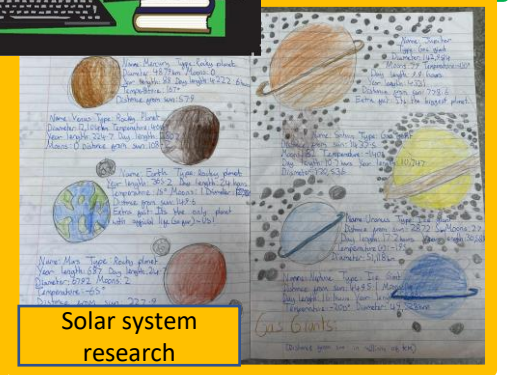 Name: Mercury Type: Rocky planet
Diameter: 4879km Moons: 0
Year length: 88 Day length: 4222.6
Temperature: 167°
Distance from sun: 57.9
Name: Venus Type: Rocky Planet
Diameter: 12,104km Temperature:
Year length: 224.7 Day length:
Moons: 0 Distance from sun: 108.2
Name: Earth Type: Rocky planet
Year length: 365.2 Day length: 24 hours
Temperature: 15° Moons: 1 Diameter:
Distance from sun: 149.6
Extra fact: It's the only planet
with
Name: Mars Type: Rocky planet
Year length: 687 Day length: 24
Diameter: 6792 Moons: 2
Temperature: -65°
Distance from sun: 227.9
Solar system
research
Name: Jupiter
Type: Gas giant
Diameter: 142,984
Moons: 79 Temperature: -110°
Day length: 9.9 hours
Year length: 4331
Distance from sun: 778.6
Extra fact: It's the biggest planet
Name: Saturn Type: Gas giant
Distance from sun: 1433.5
Moons: 82 Temperature: -140°
Day length: 10.7 hours Year length: 10,747
Diameter: 120,536
Name: Uranus Type: Ice giant
Distance from sun: 2872.5 Moons: 27
Day length: 17.2 hours Year length: 30,589
Temperature: -195
Diameter: 51,118
Name: Neptune Type: Ice Giant
Distance from sun: 4495.1
Day length: 16 hours Year length:
Temperature: -200° Diameter:
Gas Giants:
(Distance from sun is in millions of km)